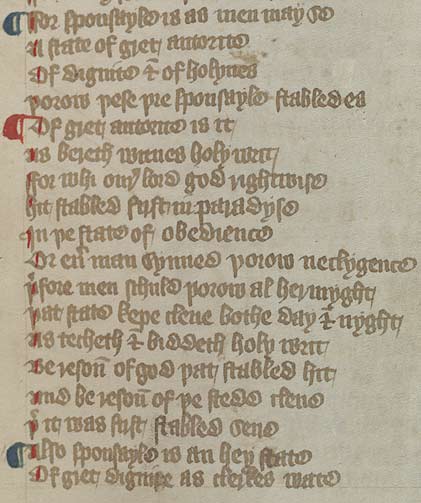 ffor spousayle is as men may se
A state of gret autorite
Of dignite & of holynes
þorow þese þre spousayle stabled es
Of gret autorite is it
As bereth witnes holy writ
ffor whi oure lord god rightwise
hit stabled furst in paradyse
In þe state of obedience
Or eny man synned þorow neclygence
þerfore men schuld þorow al her myght
þat state kepe clene bothe day & nyght
As techeth & biddeth holy writ
Be reson of god þat stabled hit
And be reson of þe stede clene
þer it was furst stabled sene
Also spousayle is an hey state
Of gret dignite as clerkes wate